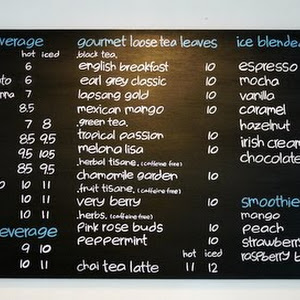 verage
hot iced
6
to 6
na 7
8.5
7 8
8.5 9.5
9.5 10.5
8.5 9.5
10 11
10 11
10 11
everage
9 10
10 11
gourmet loose tea leaves
.black tea.
english breakfast 10
earl grey classic 10
lapsang gold 10
mexican mango 10
.green tea.
tropical passion 10
melona lisa 10
.herbal tisane. (caffeine free)
chamomile garden 10
.fruit tisane. (caffeine free)
very berry 10
.herbs. (caffeine free)
pink rose buds 10
peppermint 10
hot iced
chai tea latte 11 12
ice blende
espresso
mocha
vanilla
caramel
hazelnut
irish cream
chocolate
smoothie
mango
peach
strawberry
raspberry b